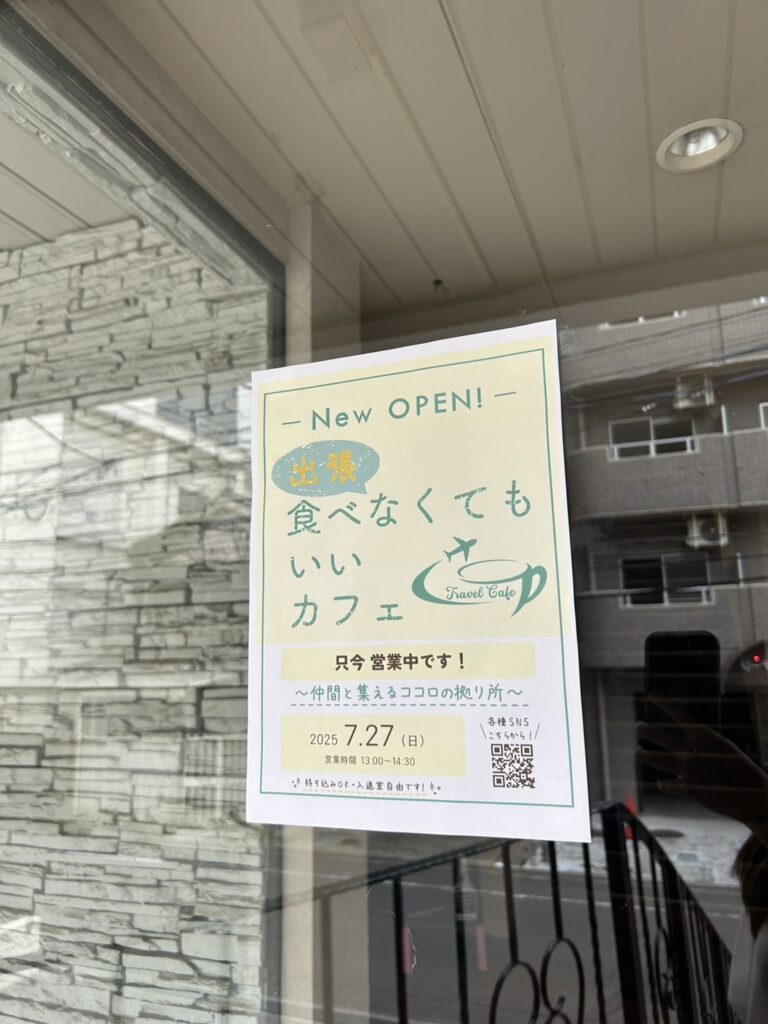 New OPEN!
出張
食べなくても
いい
カフェ
Travel Cafe
只今 営業中です！
～仲間と集えるココロの拠り所～
2025 7.27（日）
営業時間 13:00～14:30
各種SNS
こちらから！
持ち込みOK・入退室自由です！